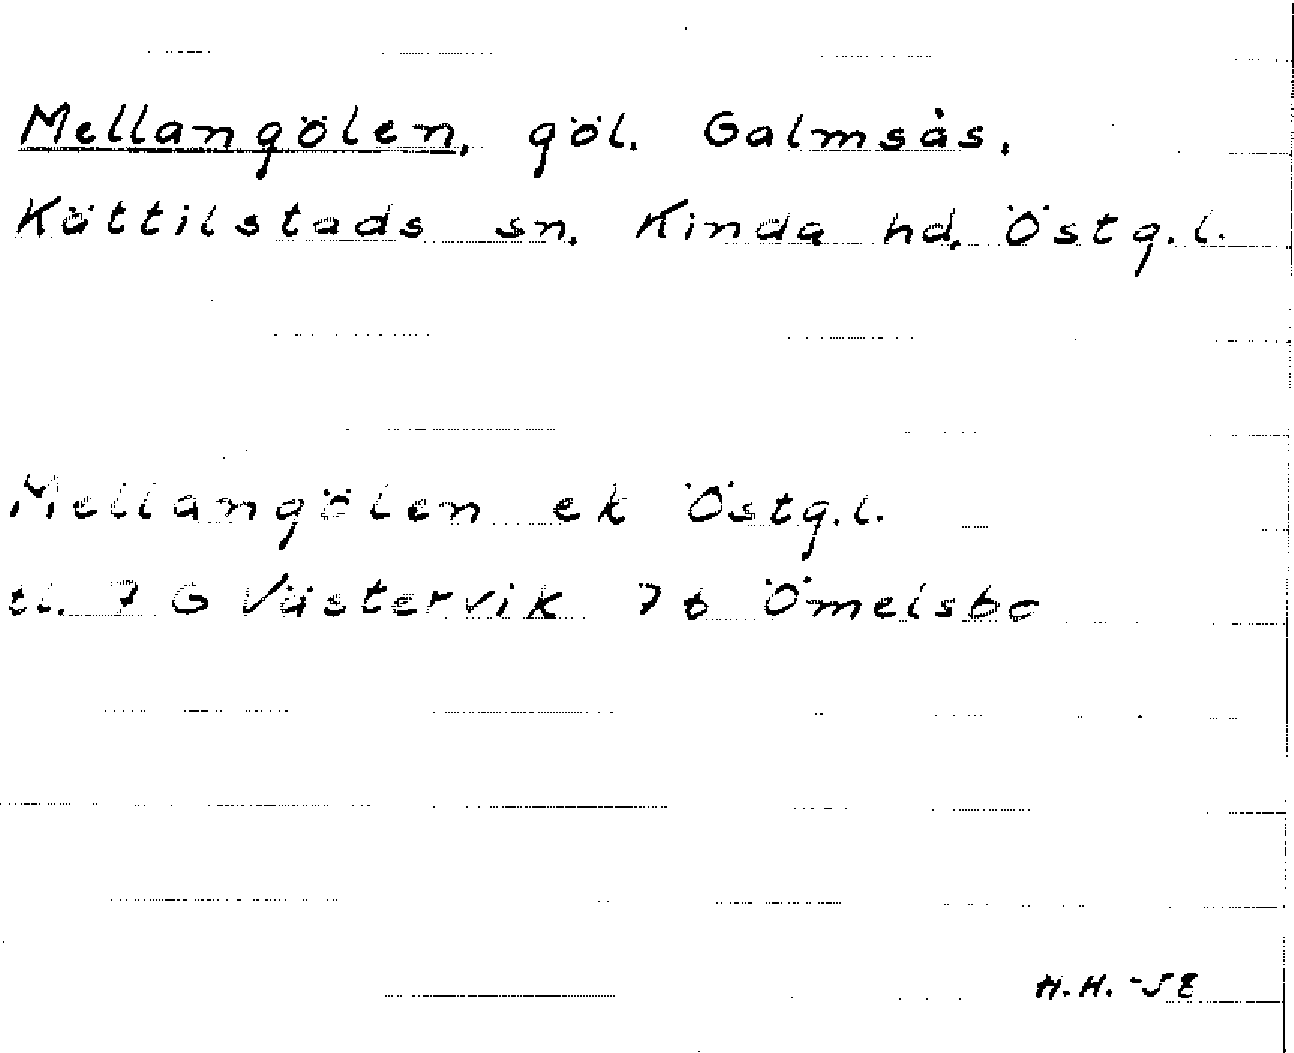 Mellangölen, göl. Galmsås.
Kättilstads sn. Kinda hd. Östg.l.
Mellangölen ek Östg.l.
tl. 7 G Västervik 7b Ömelsbo
H.H. -58